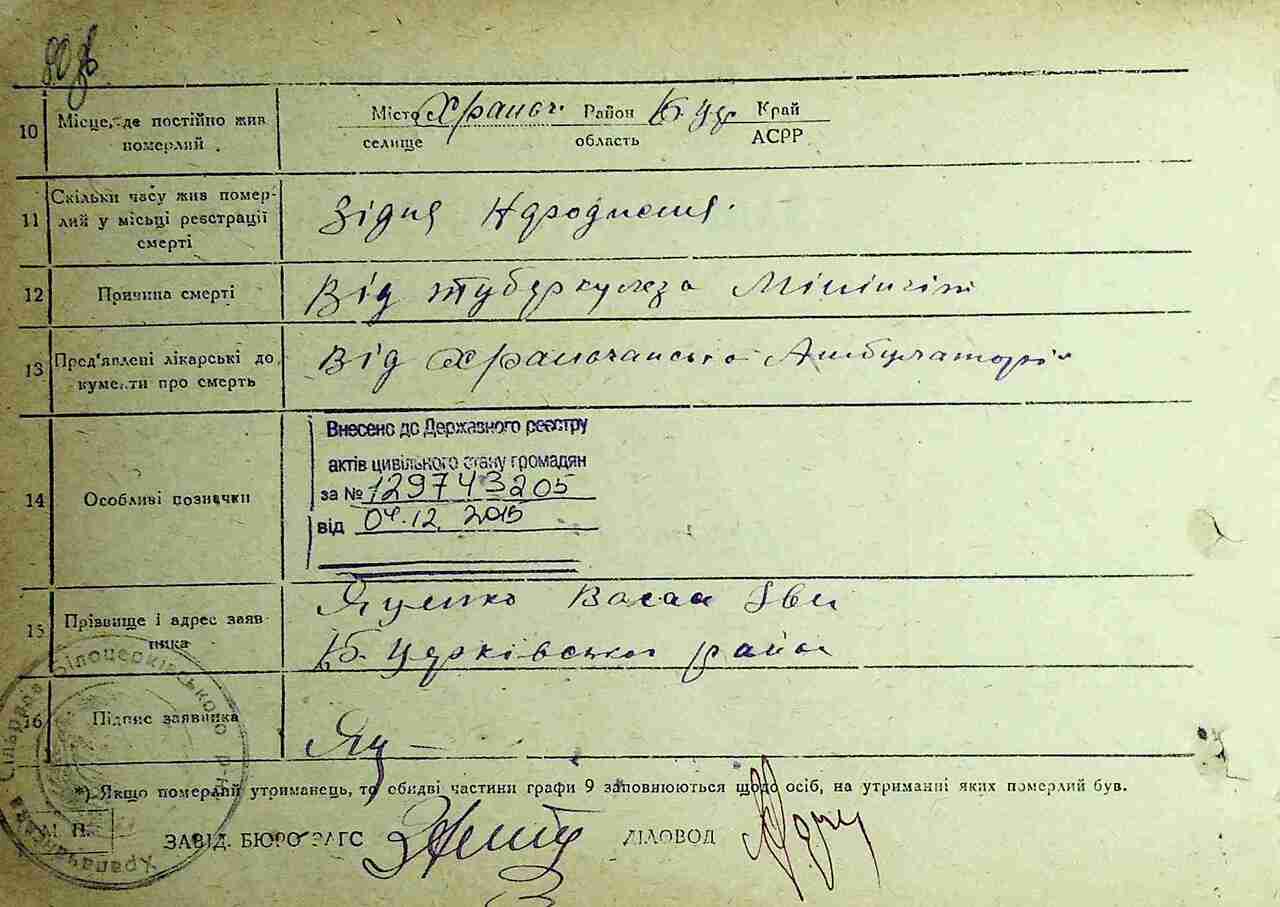 10 Місце, де постійно жив померлий
Місто Храпач. Район Б. Цер. Край
селище область АСРР
11 Скільки часу жив помер-
лий у місьці реєстрації
смерті
Зідня Народженя.
12 Причина смерті Від туберкульза Мінінгіт
13 Пред'явлені лікарські до
кументи про смерть
Від Храпачанської Амбулаторії
14 Особливі позначки
Внесено до Державного реєстру
актів цивільного стану громадян
за № 129743205
від 04.12.2015
15 Прізвище і адрес заяв
ника
Яценко
Б. Церківського район
16 Підпис заявника Яц
*) Якщо померлий утриманець, то обидві частини графи 9 заповнюються щодо осіб, на утриманні яких померлий був.
М. П. ЗАВІД. БЮРО ЗАГС ДІЛОВОД
Храпачанська Сільрада Білоцерківського р-н